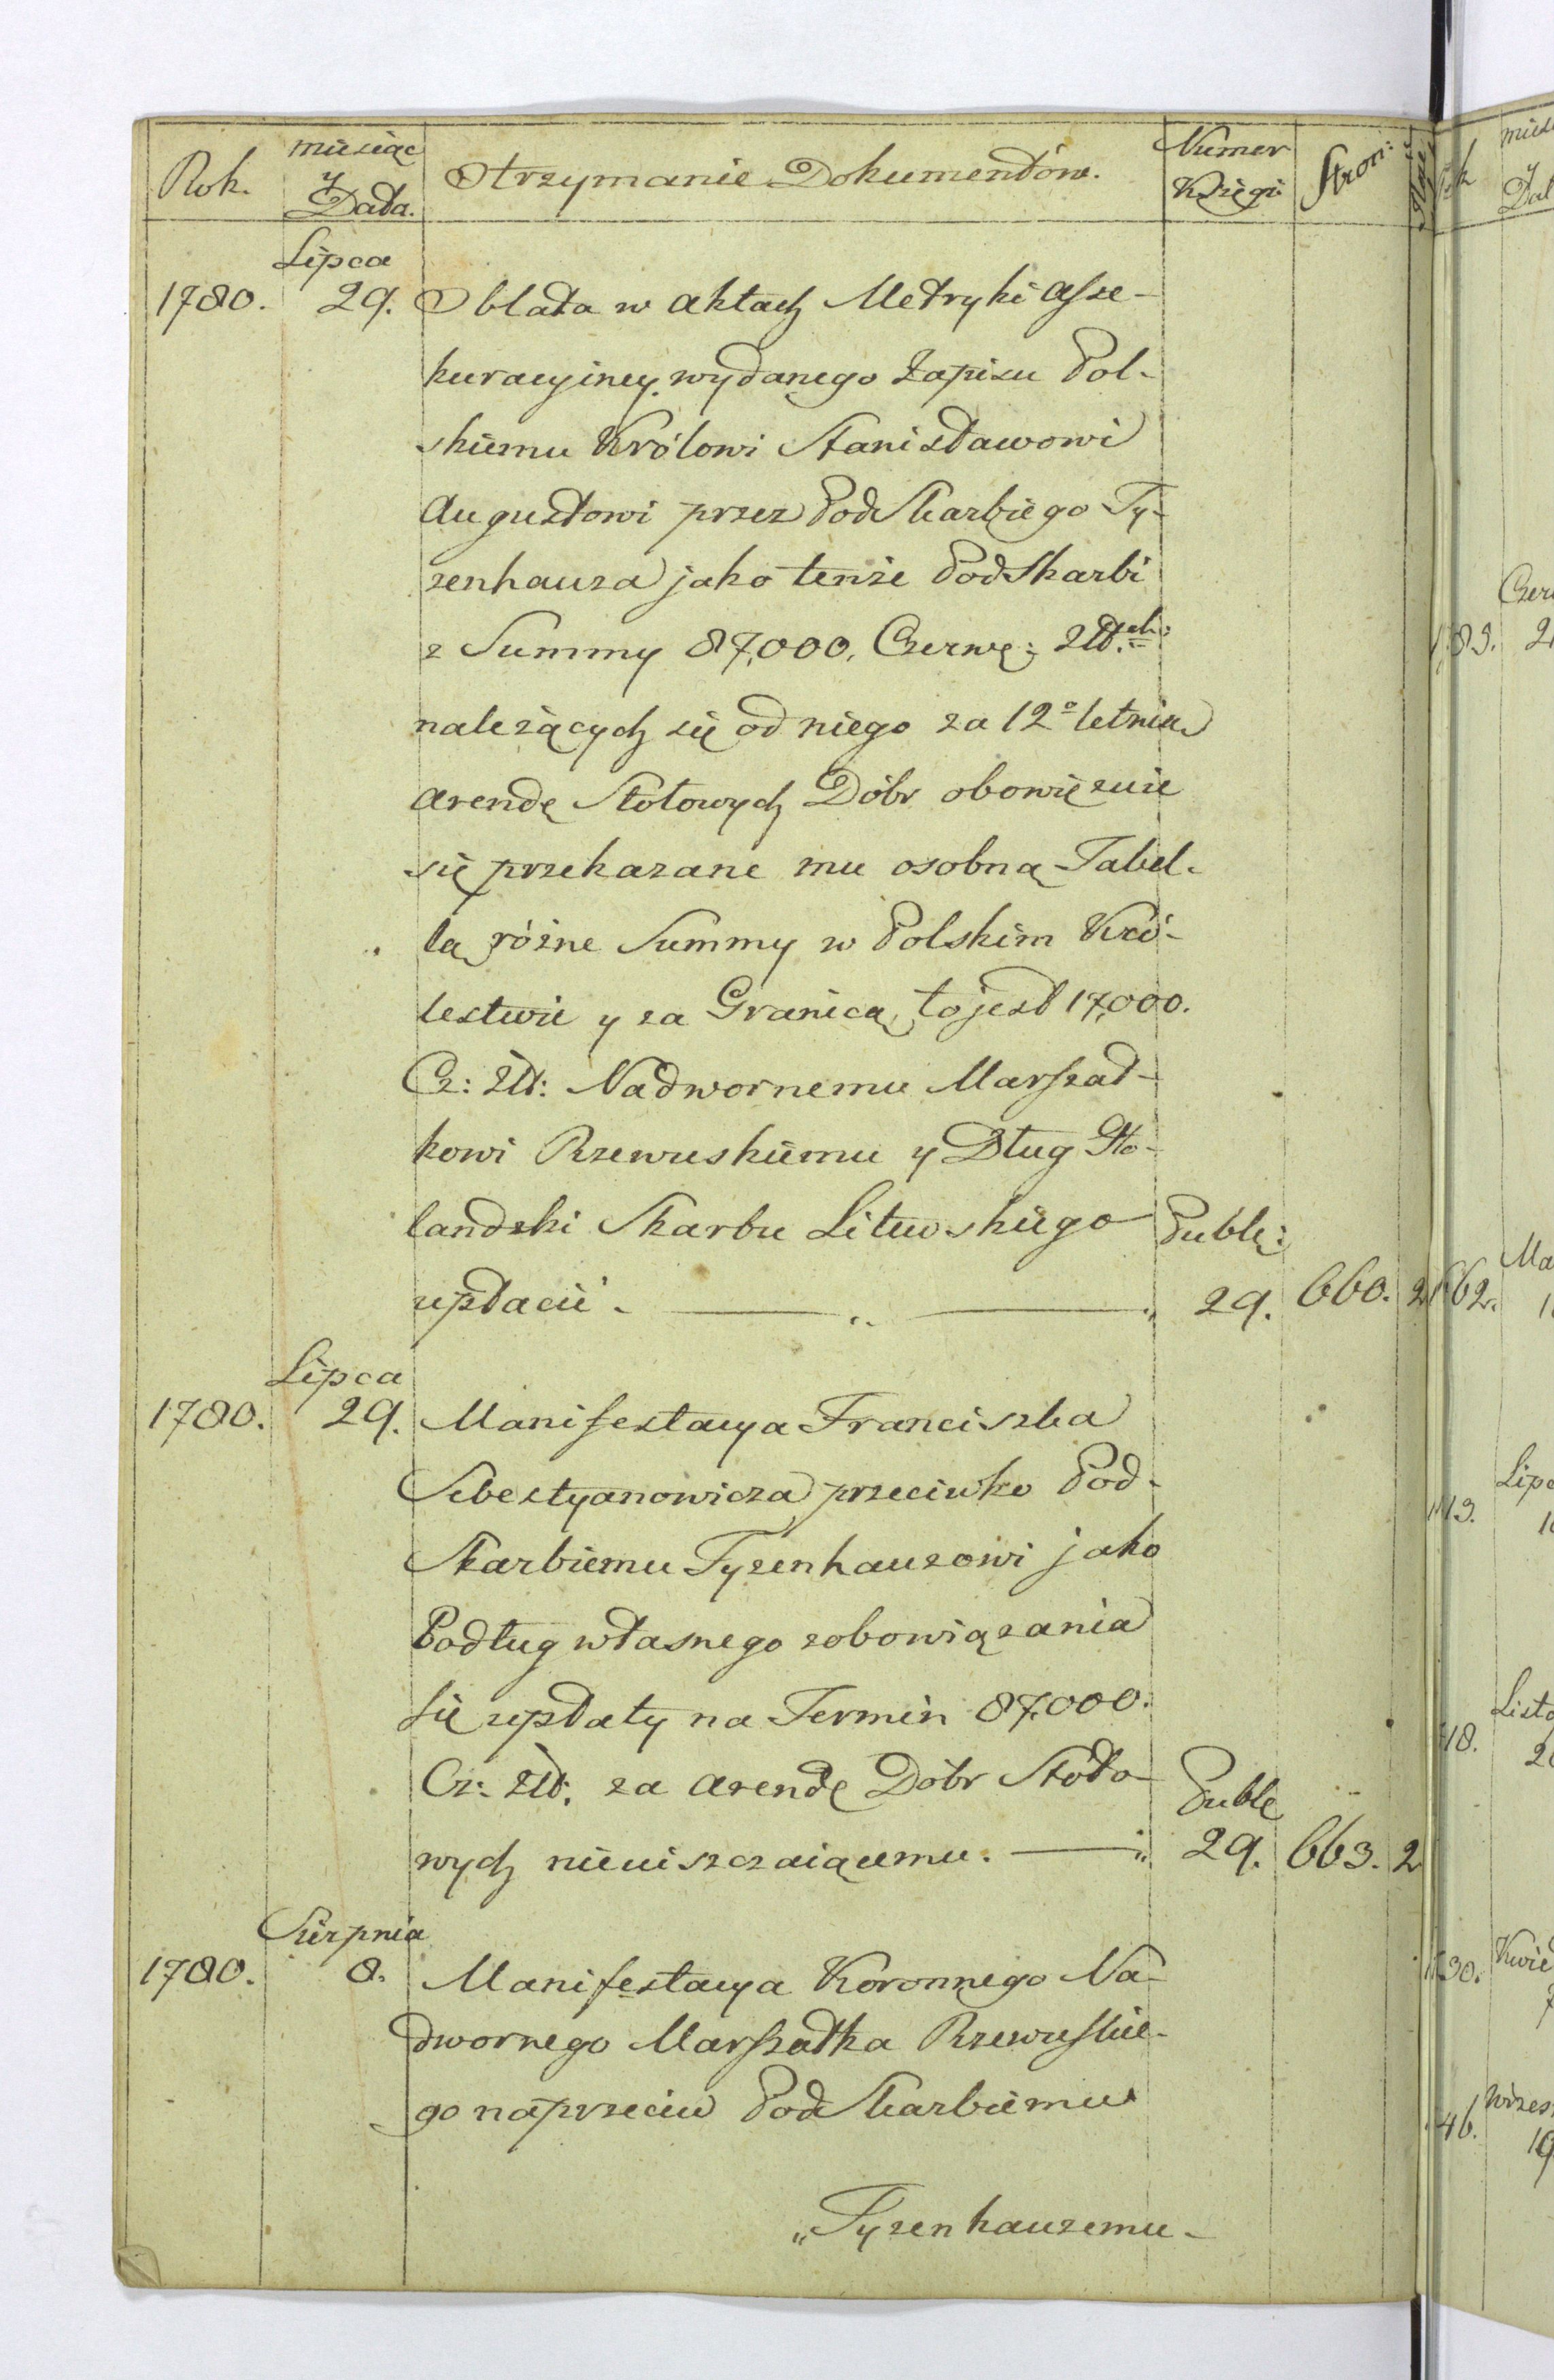 Rok. miesiąc y Data. Otrzymanie Dokumentów. Numer Księgi Stron:
Lipca
1780. 29. Oblata w aktach Metryki asse-
kuracyiney wydanego Zapisu Pol-
skiemu Królowi Stanisławowi
Augustowi przez PodSkarbiego Ty-
zenhauza jako tenże PodSkarbi
z Summy 87,000. Czerwę: Złt.ch:
należących się od niego za 12o letnia
arendę Stołowych Dóbr obowięzuie
się przekazane mu osobną Tabel-
lą różne Summy w Polskim Kró-
lestwie y za Granicą to jest 17,000.
Cz: Złt: Nadwornemu Marszał-
kowi Rzewuskiemu y Dług Ho-
landzki Skarbu Litewskiego Publę:
zupłacić. 29. 660. 2
Lipca
1780. 29. Manifestacya Franciszka
Sebestyanowicza przeciwko Pod-
Skarbiemu Tyzenhauzowi jako
Podług własnego zobowiązania
się zupłaty na Termin 87,000.
Cz: Złt: za arendę Dóbr Stoło- Publę
wych nieuiszczaiącemu. 29. 663. 2
Sierpnia
1780. 8. Manifestacya Koronnego Na-
dwornego Marszałka Rzewuskie-
go naprzeciw PodSkarbiemu
„Tyzenhauzemu-